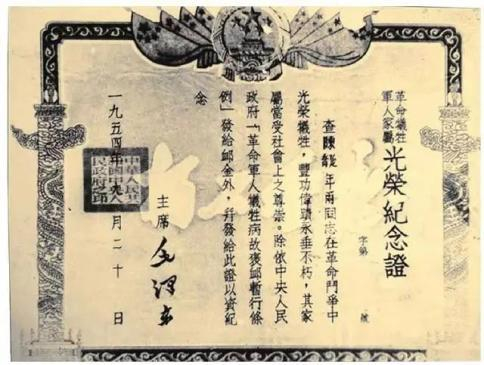 革命犧牲
軍人家屬
光榮紀念證
字第 號
查陳 年兩同志在革命鬥爭中
光榮犧牲,豐功偉蹟永垂不朽,其家
屬當受社會上之尊崇。除依中央人民
政府「革命軍人犧牲病故褒卹暫行條
例」發給卹金外,幷發給此證以資紀
念
主席 毛澤東
一九五四年 月二十日
中華人民共
和國中央人
民政府之印